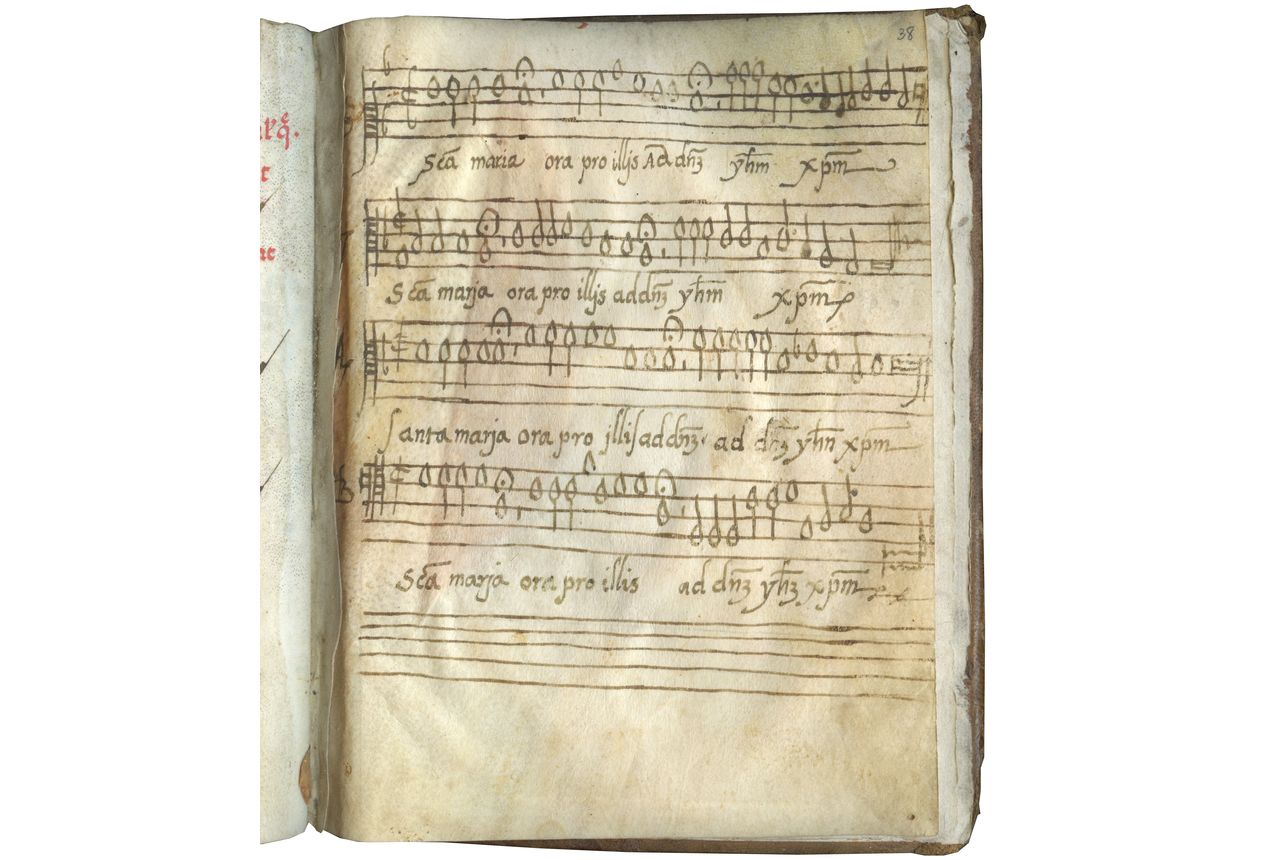 38
Sc̃a maria ora pro illjs Ad dñ3 yh̃m xp̃m
Sc̃a marja ora pro illjs ad dñ3 yh̃m xp̃m
A
santa marja ora pro illis ad dñ3. ad dñ3 yh̃n xp̃m
B
Sc̃a marja ora pro illis ad dñ3 yh̃3 xp̃m